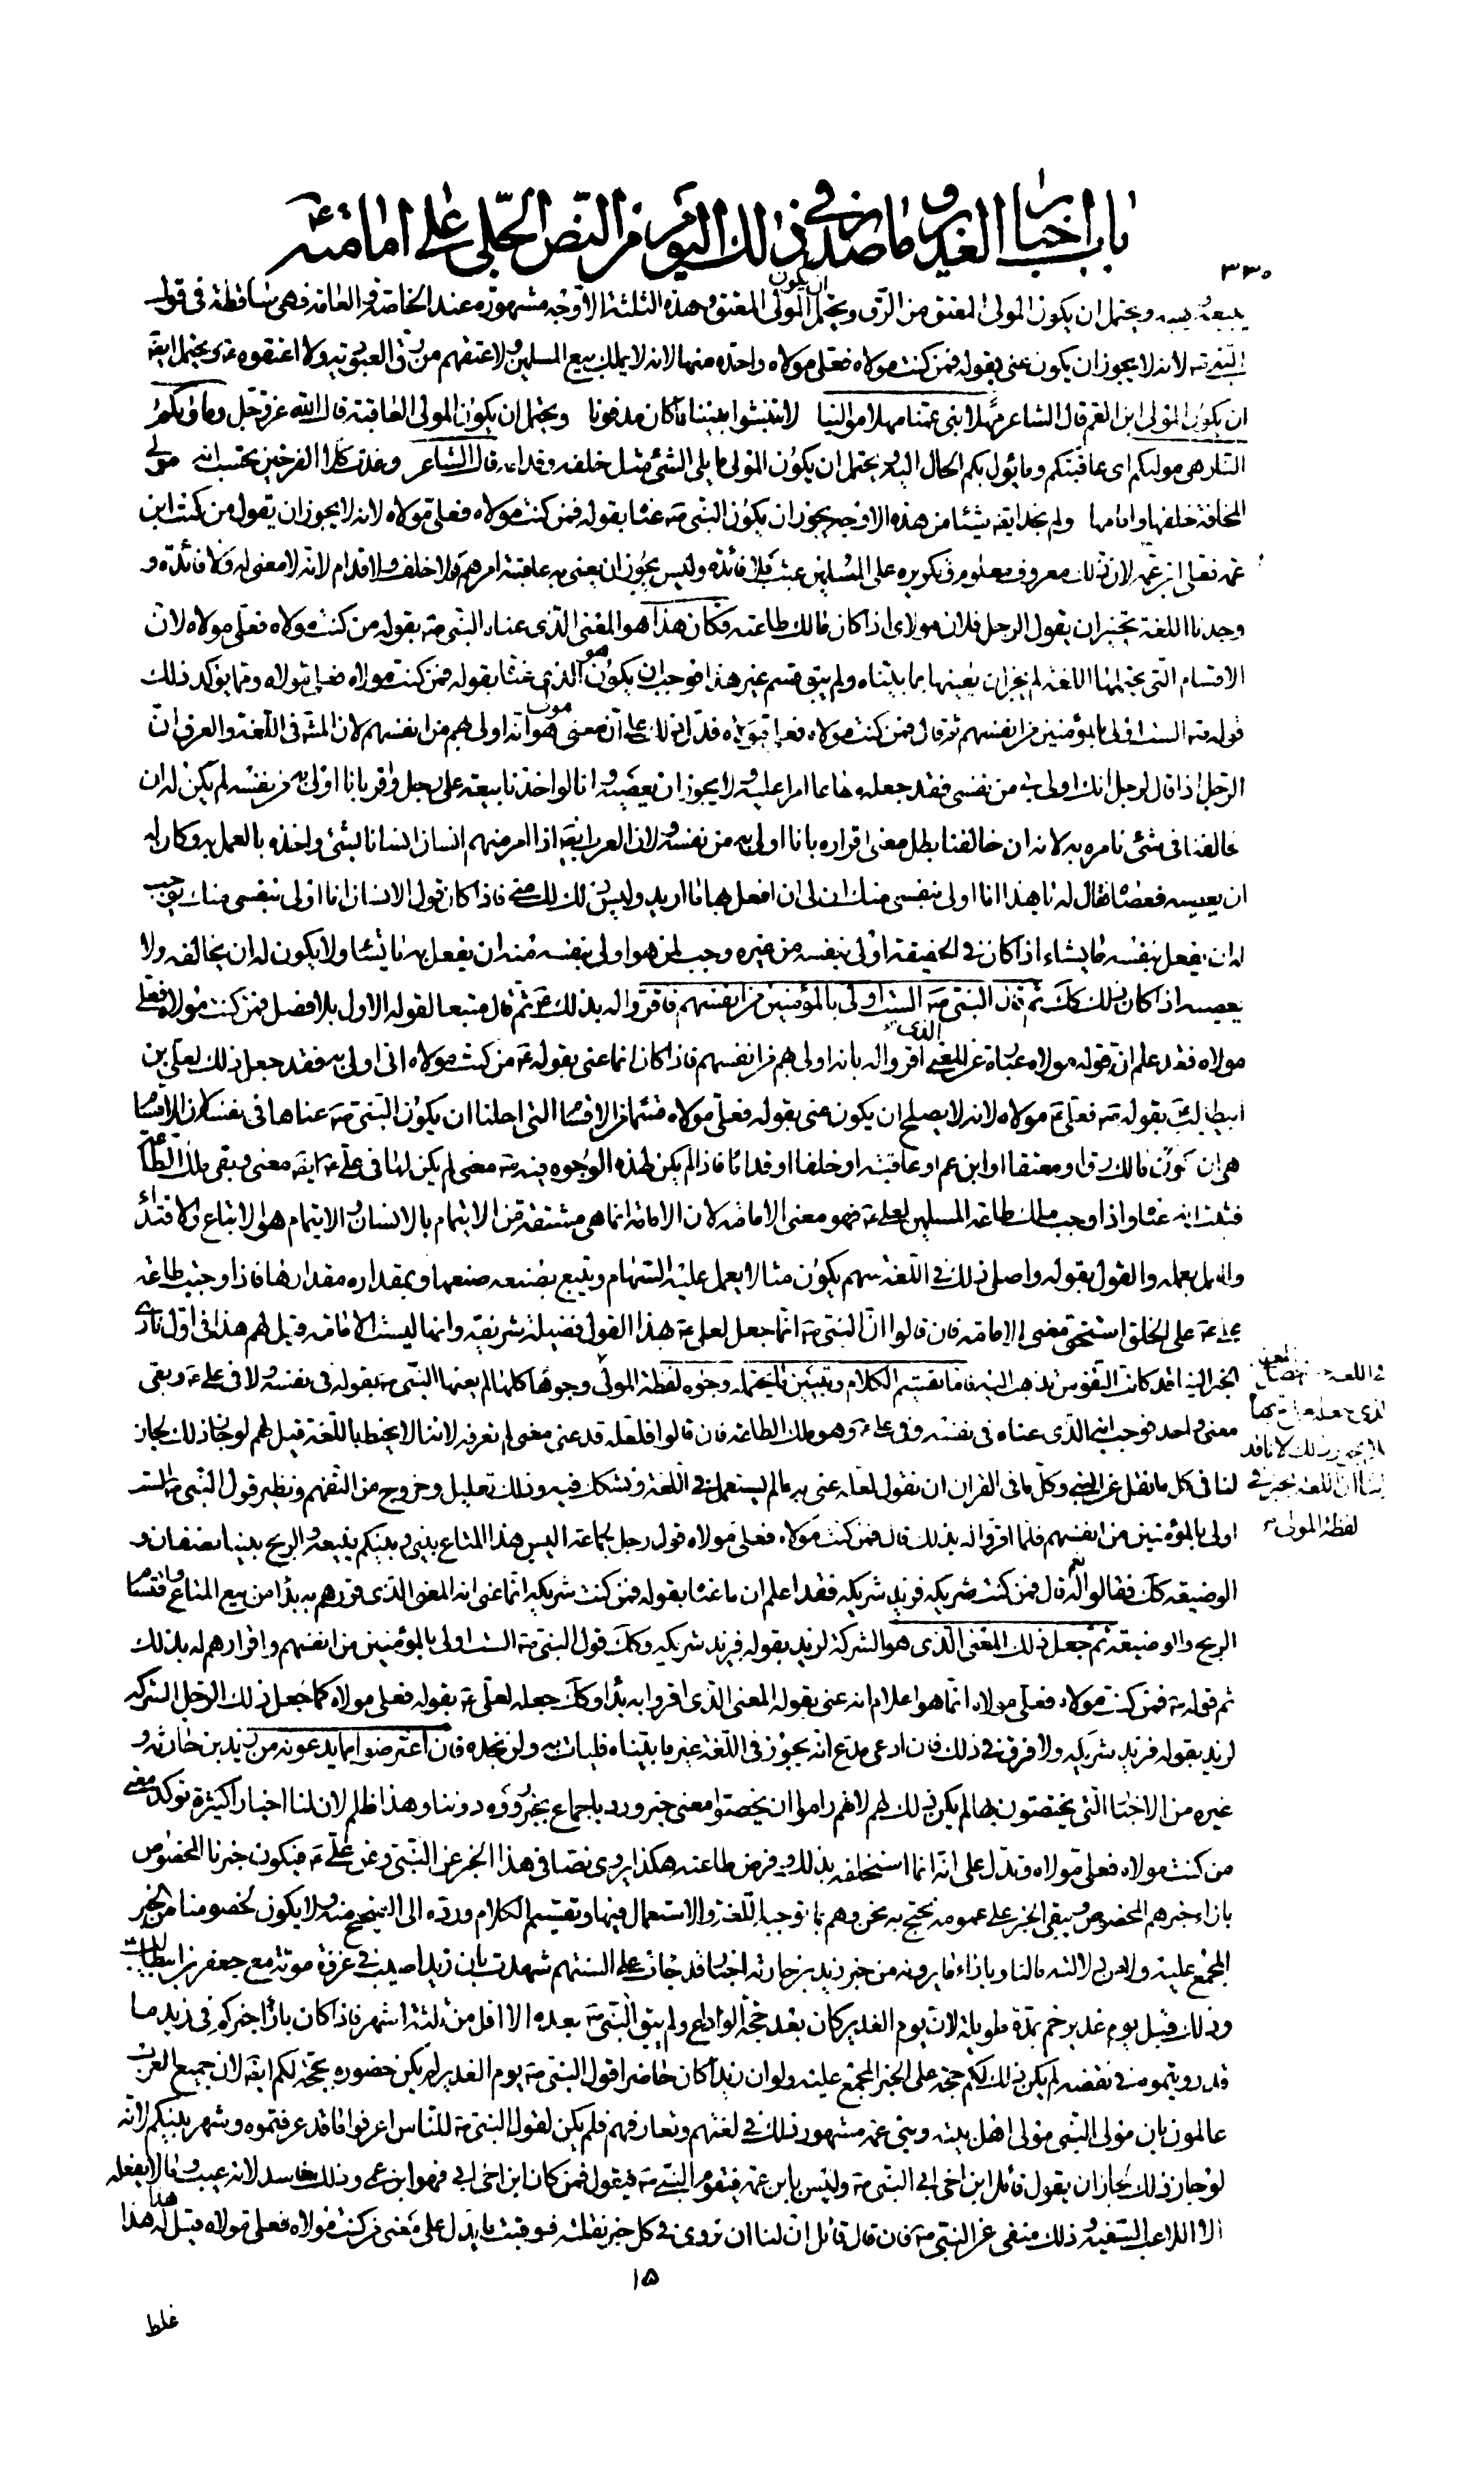 باب اخبار الغدير و ما صدر في ذلك اليوم من النص الجلي على امامته ع
٣٣٥
يبيعه ويهبه ويحتمل ان يكون المولى المعتق من الرق ويحتمل ان يكون المولى المعتق وهذه الثلثة الاوجه مشهورة عند الخاصة والعامة فهي ساقطة في قول
النبي ص لانه لا يجوز ان يكون عنى بقوله فمن كنت مولاه فعلي مولاه واحدة منها لانه لا يملك بيع المسلمين ولا عتقهم من رق العبودية ولا اعتقوه ع ويحتمل ايضا
ان يكون المولى ابن العم قال الشاعر مهلا بني عمنا مهلا موالينا لا تنبشوا بيننا ما كان مدفونا ويحتمل ان يكون المولى العاقبة قال الله عز وجل وماويكم
النار هي موليكم اى عاقبتكم وما يؤل بكم الحال اليه ويحتمل ان يكون المولى ما يلي الشئ مثل خلفه وقدامه قال الشاعر وغدت كلا الفرجين تحسب انه مولى
المخافة خلفها وامامها ولم نجد ايضه شيئا من هذه الاوجه يجوز ان يكون النبي ص عناه بقوله فمن كنت مولاه فعلي مولاه لانه لا يجوز ان يقول من كنت ابن
عمه فعلي ابن عمه لان ذلك معروف معلوم وتكريره على المسلمين عبث بلا فائدة وليس يجوز ان يعني به عاقبة امرهم ولا خلف ولا قدام لانه لا معنى له ولا فائدة و
وجدنا اللغة تجيز ان يقول الرجل فلان مولاى اذا كان مالك طاعته فكان هذا هو المعنى الذى عناه النبي ص بقوله من كنت مولاه فعلي مولاه لان
الاقسام التى تحتملها اللغة لم يجز ان يعينها بما بيناه ولم يبق قسم غير هذا فوجب ان يكون هو الذى عناه بقوله فمن كنت مولاه فعلي مولاه ومما يؤكد ذلك
قوله ص الست اولى بالمؤمنين من انفسهم ثم قال فمن كنت مولاه فعلي مولاه فدل ذلك على ان معنى مولى هو انه اولى بهم من انفسهم لان المشهور في اللغة والعرف ان
الرجل اذا قال لرجل انك اولى بي من نفسي فقد جعله مطاعا امرا عليه ولا يجوز ان يعصيه وانا لو اخذنا بيعة على رجل واقر بانا اولى به من نفسه لم يكن له ان
يخالفنا في شئ نامره به لانه ان خالفنا بطل معنى اقراره بانا اولى به من نفسه ولان العرب ايضا اذا امر منهم انسان انسانا بشئ واخذه بالعمل به وكان له
ان يعصيه فعصاه فقال له يا هذا انا اولى بنفسي منك ان لى ان افعل بها ما اريد وليس ذلك لك مني فاذا كان قول الانسان انا اولى بنفسي منك يوجب
له ان يفعل بنفسه ما يشاء اذا كان في الحقيقة اولى بنفسه من غيره وجب لمن هو اولى بنفسه منه ان يفعل به ما يشاء ولا يكون له ان يخالفه ولا
يعصيه اذا كان ذلك كذلك ثم قال النبي ص الست اولى بالمؤمنين من انفسهم فاقروا له بذلك ع ثم قال متبعا لقوله الاول بلا فصل فمن كنت مولاه فعلي
مولاه فقد علم ان قوله مولاه عبارة عن المعنى الذى اقروا له بانه اولى بهم من انفسهم فاذا كان انما عنى بقوله ع من كنت مولاه انى اولى به فقد جعل ذلك لعلي بن
ابيطالب ع بقوله ص فعلي ع مولاه لانه لا يصلح ان يكون عنى بقوله فعلي مولاه قسما من الاقسام التى احلنا ان يكون النبي ص عناها في نفسه لان الاقسام
هى ان يكون مالك رق او معتقا او ابن عم او عاقبة او خلفا او قداما فاذا لم يكن لهذه الوجوه فيه ص معنى لم يكن لها في علي ع ايضه معنى وبقى ملك الطاعة
فثبت انه عناه واذا وجب ملك طاعة المسلمين لعلي ع فهو معنى الامامة لان الامامة انما هى مشتقة من الايتمام بالانسان والايتمام هو الاتباع والاقتداء
والعمل بعمله والقول بقوله واصل ذلك في اللغة سهم يكون مثالا يعمل عليه السهام ويتبع بصنعه صنعها وبمقداره مقدارها فاذا وجبت طاعة
علي ع على الخلق استحق معنى الامامة فان قالوا ان النبي ص انما جعل لعلي ع بهذا القول فضيلة شريفة وانها ليست الامامة قيل لهم هذا في اول تأدى
الخبر الينا قد كانت النفوس تذهب اليه فاما تقسيم الكلام وتبيين ما يحتمله وجوه لفظة المولى وجوها كلها لم يعنها النبي ص بقوله في نفسه ولا في علي ع وبقى
معنى واحد فوجب انه الذى عناه في نفسه وفي علي ع وهو ملك الطاعة فان قالوا فلعله قد عنى معنى لم نعرفه لاننا لا نحيط باللغة قيل لهم لو جاز ذلك لجاز
لنا في كل ما نقل عن النبي وكل ما في القران ان نقول لعله عنى به ما لم يستعمل في اللغة ونشكك فيه وذلك تعليل وخروج من التفهم ونظير قول النبي ص الست
اولى بالمؤمنين من انفسهم فلما اقروا له بذلك قال فمن كنت مولاه فعلي مولاه قول رجل لجماعة اليس هذا المتاع بيني وبينكم نبيعه والربح بيننا نصفان و
الوضيعة كذلك فقالوا له نعم قال فمن كنت شريكه فزيد شريكه فقد اعلم ان ما عناه بقوله فمن كنت شريكه انما عنى انه المعنى الذى قررهم به بدأ من بيع المتاع واقتسام
الربح والوضيعة ثم جعل ذلك المعنى الذى هو الشركة لزيد بقوله فزيد شريكه وكذلك قول النبي ص الست اولى بالمؤمنين من انفسهم واقرارهم له بذلك
ثم قوله ص فمن كنت مولاه فعلي مولاه انما هو اعلام انه عنى بقوله المعنى الذى اقروا به بدأ وكذلك جعله لعلي ع بقوله فعلي مولاه كما جعل ذلك الرجل الشركة
لزيد بقوله فزيد شريكه ولا فرق في ذلك فان ادعى مدع انه يجوز في اللغة غير ما بيناه فليأت به ولن يجده فان اعترضوا بما يدعونه من زيد بن حارثة و
غيره من الاخبار التى يختصون بها لم يكن ذلك لهم لانهم راموا ان يخصوا معنى خبر ورد باجماع بخبر رووه دوننا وهذا ظلم لان لنا اخبارا كثيرة توكد معنى
من كنت مولاه فعلي مولاه وتدل على انه انما استخلفه بذلك وفرض طاعته هكذا يروى نصا في هذا الخبر عن النبي ص وعن علي ع فيكون خبرنا المخصوص
بازاء خبرهم المخصوص ويبقى الخبر على عمومه نحتج به نحن وهم بما توجبه اللغة والاستعمال فيها وتقسيم الكلام ورده الى الصحيح منه ولا يكون لخصومنا من الخبر
المجمع عليه ولا من دلالته ما لنا وبازاء ما يروونه من خبر زيد بن حارثة اخبار قد جاءت على السنتهم شهدت بان زيدا اصيب في غزوة موتة مع جعفر بن ابيطالب
وذلك قبل يوم غدير خم بمدة طويلة لان يوم الغدير كان بعد حجة الوداع ولم يبق النبي ص بعده الا اقل من ثلثة اشهر فاذا كان بازاء خبركم في زيد ما
قد رويتموه في نقضه لم يكن ذلك لكم حجة على الخبر المجمع عليه ولو ان زيدا كان حاضرا قول النبي ص يوم الغدير لم يكن حضوره بحجة لكم ايضا لان جميع العرب
عالمون بان مولى النبي مولى اهل بيته وبني عمه مشهور ذلك في لغتهم وتعارفهم فلم يكن لقول النبي ص للناس اعرفوا ما قد عرفتموه وشهر بينكم لانه
لو جاز ذلك لجاز ان يقول قائل ابن اخى اب النبي ص وليس بابن عمه فيقوم النبي ص فيقول فمن كان ابن اخى ابى فهو ابن عمى وذلك فاسد لانه عيب وما لا يفعله
الا اللاعب السفيه وذلك منفى عن النبي ص فان قال قائل ان لنا ان نروى في كل خبر نقلته فرقتنا ما يدل على معنى من كنت مولاه فعلي مولاه قيل له هذا
لفظة المولى
١٥
غلط